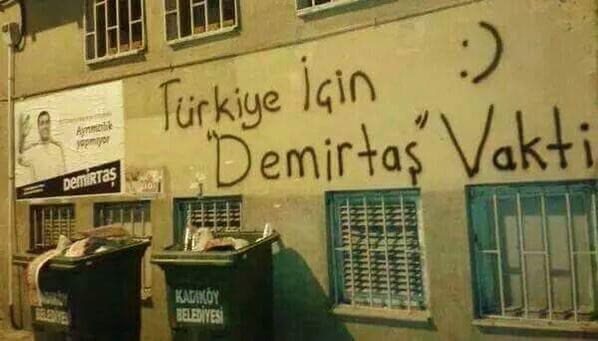 Türkiye İçin :)
"Demirtaş" Vakti
Ayrımcılık
yapmıyor
DEMİRTAŞ
KADIKÖY
BELEDİYESİ
KADIKÖY
BELEDİYESİ